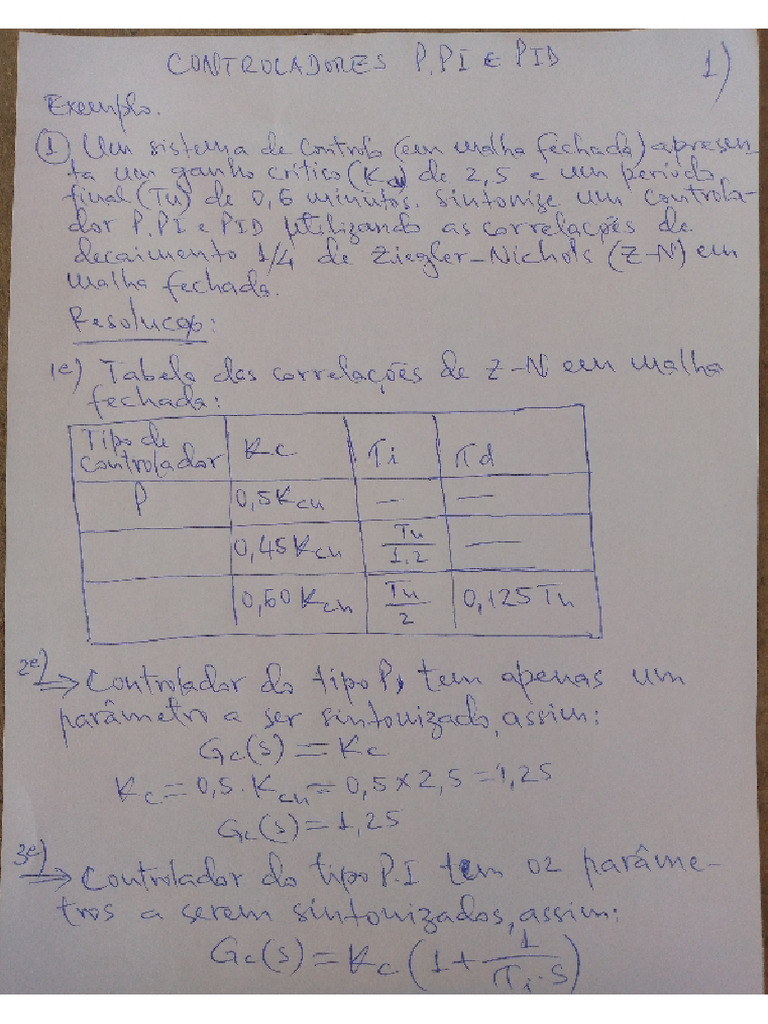 CONTROLADORES P, PI E PID
1)
Exemplo.
① Um sistema de controlo (em malha fechada) apresen-
ta um ganho crítico (Kcu) de 2,5 e um período
final (Tu) de 0,6 minutos. Sintonize um controla-
dor P, PI e PID utilizando as correlações de
decaimento 1/4 de Ziegler-Nichols (Z-N) em
malha fechada.
Resolucao:
1º) Tabela das correlações de Z-N em malha
fechada:
Tipo de controlador Kc τi τd
P 0,5Kcu — —
0,45Kcu Tu/1,2 —
0,60Kcu Tu/2 0,125Tu
2º) ⇒ Controlador do tipo P, tem apenas um
parâmetro a ser sintonizado, assim:
Gc(s) = Kc
Kc = 0,5. Kcu = 0,5 x 2,5 = 1,25
Gc(s) = 1,25
3º) ⇒ Controlador do tipo P.I tem 02 parâme-
tros a serem sintonizados, assim:
Gc(s) = Kc (1 + 1/τi.s)